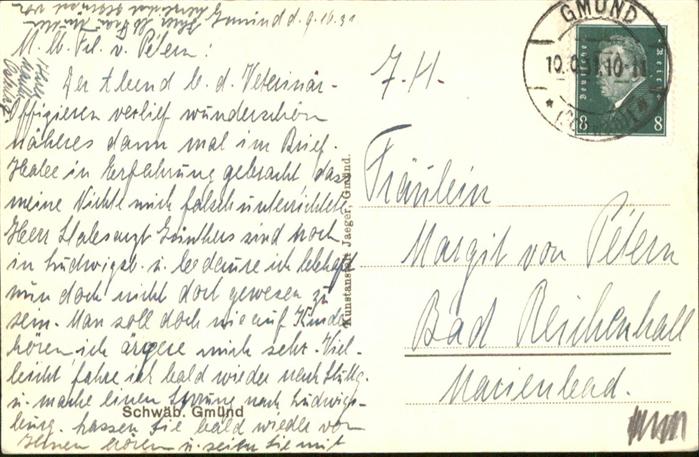 Gmünd d. 9.10.31
M. lb. Frl. v. Pétern:
Der Abend b. d. Veterinär-
offizieren verlief wunderschön
näheres dann mal im Brief.
Habe in Erfahrung gebracht dass
meine Nichte mich falsch unterrichtete
Herr Stabsarzt Günthers sind noch
in Ludwigsb. u. bedaure ich lebhaft
nun doch nicht dort gewesen zu
sein. Man soll doch nie auf Kinder
hören ich ärgere mich sehr. Viel-
leicht fahre ich bald wieder nach Stuttg.
u. mache einen Sprung nach Ludwigs-
burg. Lassen Sie bald wieder von
Ihnen hören u. seien Sie mit
Schwäb. Gmünd
Kunstanstalt Jaeger, Gmünd.
GMÜND
10-11
Deutsches Reich
8 8
J. H.
Fräulein
Margit von Pétern
Bad Reichenhall
Marienbad.